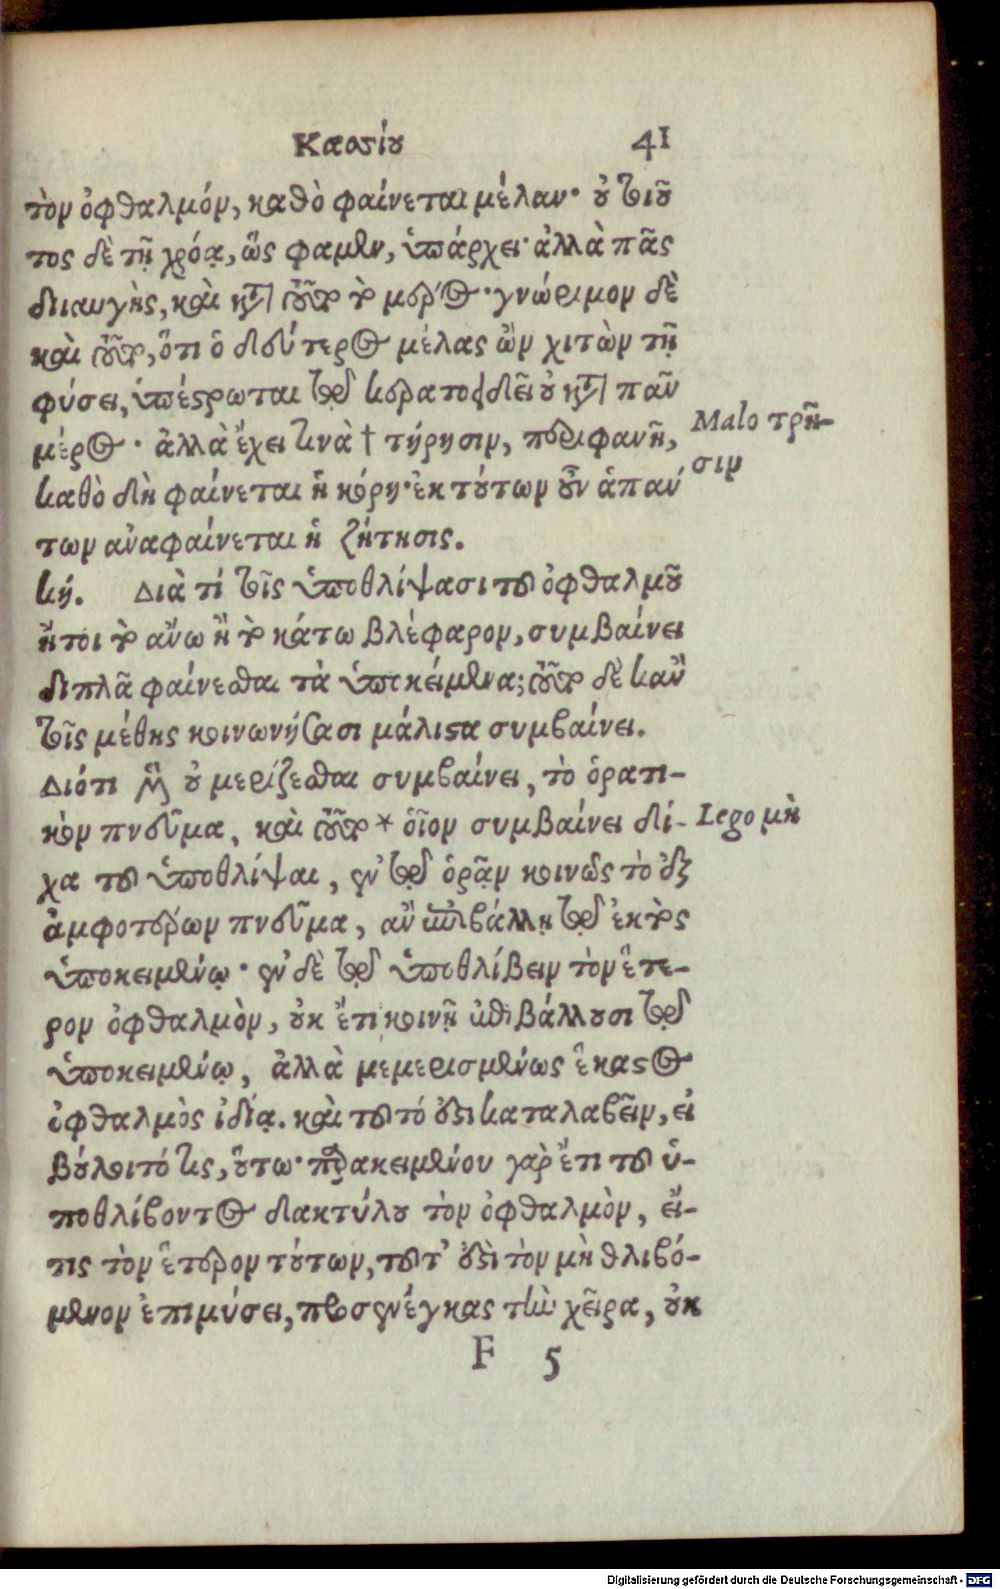 Κασσίου 41
τὸν ὀφθαλμόν, καθὸ φαίνεται μέλαν· οὐ τοιοῦ
τος δὲ τῇ χρόᾳ, ὥς φαμεν, ὑπάρχει· ἀλλὰ πᾶς
διαυγὴς, καὶ κατὰ τοῦτο τὸ μέρος· γνώριμον δὲ
καὶ τοῦτο, ὅτι ὁ δεύτερος μέλας ὢν χιτὼν τῇ
φύσει, ὑπέστρωται τῷ κερατοειδεῖ οὐ κατὰ πᾶν
μέρος· ἀλλὰ ἔχει τινὰ † τήρησιν, περιφανῆ,
Malo τρῆ-
σιν
καθὸ δὴ φαίνεται ἡ κόρη· ἐκ τούτων οὖν ἁπάν
των ἀναφαίνεται ἡ ζήτησις.
κή. Διὰ τί τοῖς ὑποθλίψασι τοῦ ὀφθαλμοῦ
ἤτοι τὸ ἄνω ἢ τὸ κάτω βλέφαρον, συμβαίνει
διπλᾶ φαίνεσθαι τὰ ὑποκείμενα; τοῦτο δὲ κἀν
τοῖς μέθης κοινωνήσασι μάλιστα συμβαίνει.
Διότι μὴ οὐ μερίζεσθαι συμβαίνει, τὸ ὁρατι-
κὸν πνεῦμα, καὶ τοῦτο * οἷον συμβαίνει δί-
Lego μὴ
χα τοῦ ὑποθλίψαι, ἐν τῷ ὁρᾷν κοινῶς τὸ ἐξ
ἀμφοτέρων πνεῦμα, ἂν ἐπιβάλλῃ τῷ ἐκτὸς
ὑποκειμένῳ· ἐν δὲ τῷ ὑποθλίβειν τὸν ἕτε-
ρον ὀφθαλμὸν, οὐκ ἔτι κοινῇ ἐπιβάλλουσι τῷ
ὑποκειμένῳ, ἀλλὰ μεμερισμένως ἕκαστος
ὀφθαλμὸς ἰδίᾳ. καὶ τοῦτό ἐστι καταλαβεῖν, εἰ
βούλοιτό τις, οὕτω· παρακειμένου γὰρ ἔτι τοῦ ὑ-
ποθλίβοντος δακτύλου τὸν ὀφθαλμὸν, εἴ-
τις τὸν ἕτερον τούτων, τοῦτ' ἐστὶ τὸν μὴ θλιβό-
μενον ἐπιμύσει, προσενέγκας τὴν χεῖρα, οὐκ
F 5
Digitalisierung gefördert durch die Deutsche Forschungsgemeinschaft - DFG